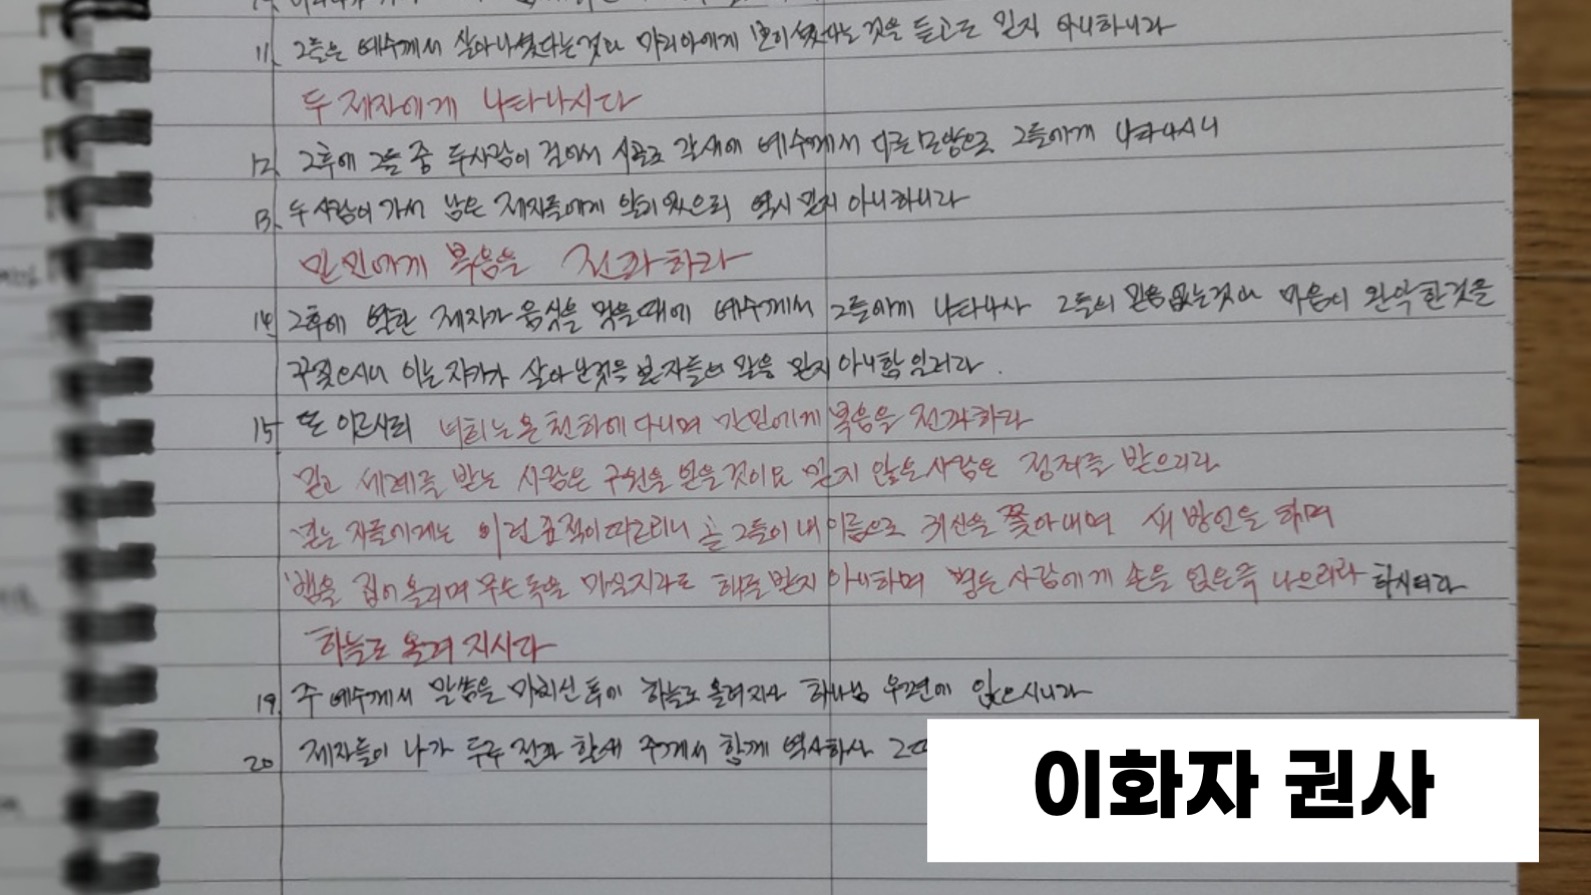 11. 그들은 예수께서 살아나셨다는 것과 마리아에게 보이셨다는 것을 듣고도 믿지 아니하니라
두 제자에게 나타나시다
12. 그 후에 그들 중 두 사람이 걸어서 시골로 갈 새에 예수께서 다른 모양으로 그들에게 나타나시니
13. 두 사람이 가서 남은 제자들에게 알리었으되 역시 믿지 아니하니라
만민에게 복음을 전파하라
14. 그 후에 열한 제자가 음식을 먹을 때에 예수께서 그들에게 나타나사 그들의 믿음 없는 것과 마음이 완악한 것을
꾸짖으시니 이는 자기가 살아난 것을 본 자들의 말을 믿지 아니함일러라.
15. 또 이르시되 너희는 온 천하에 다니며 만민에게 복음을 전파하라
믿고 세례를 받는 사람은 구원을 얻을 것이요 믿지 않는 사람은 정죄를 받으리라
믿는 자들에게는 이런 표적이 따르리니 곧 그들이 내 이름으로 귀신을 쫓아내며 새 방언을 하며
뱀을 집어 올리며 무슨 독을 마실지라도 해를 받지 아니하며 병든 사람에게 손을 얹은즉 나으리라 하시더라
하늘로 올려지시다
19. 주 예수께서 말씀을 마치신 후에 하늘로 올려지사 하나님 우편에 앉으시니라
20. 제자들이 나가 두루 전파할새 주께서 함께 역사하사
이화자 권사